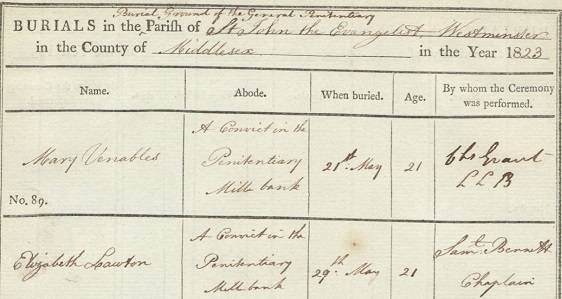 Burial Ground of the General Penitentiary
BURIALS in the Parish of St John the Evangelist, Westminster
in the County of Middlesex in the Year 1823
Name. Abode. When buried. Age. By whom the Ceremony was performed.
Mary Venables
No. 89.
A Convict in the
Penitentiary
Mill bank
21st May
21
Chs Grant
L L B
Elizabeth Lawton
A Convict in the
Penitentiary
Mill bank
29th May
21
Saml Bennett
Chaplain